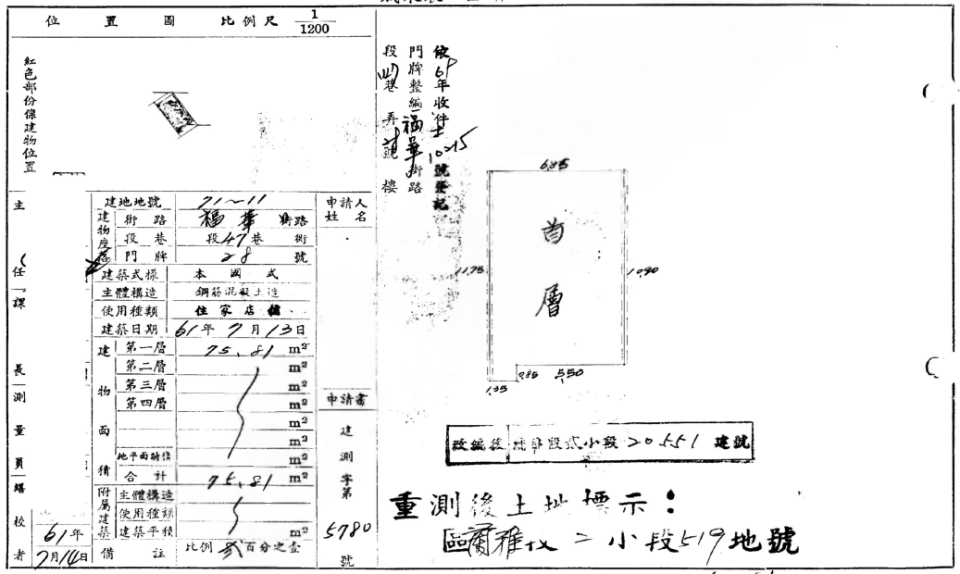 位置圖 比例尺 1/1200
紅色部份係建物位置
主任
課長
測量員
校者
61年
7月14日
建地地號 71～11
建物座落 街路 福華 街路
段巷 段47巷 街
門牌 28 號
建築式樣 本國式
主體構造 鋼筋混凝土造
使用種類 住家店舖
建築日期 61年7月13日
建物面積 第一層 75.81 m²
第二層 m²
第三層 m²
第四層 m²
m²
m²
地平面騎樓 m²
合計 75.81 m²
附屬建築 主體構造
使用種類
建築平積 m²
備註 比例貳百分之壹
申請人姓名
申請書
建測字第
5780
號
依61年收件士
10215
號登記
門牌整編福華街路
段47巷弄
號樓
6.85
首層
11.75
10.90
0.85
5.50
1.35
改編後
段貳小段20551建號
重測後土地標示：
區蘭雅段二小段519地號